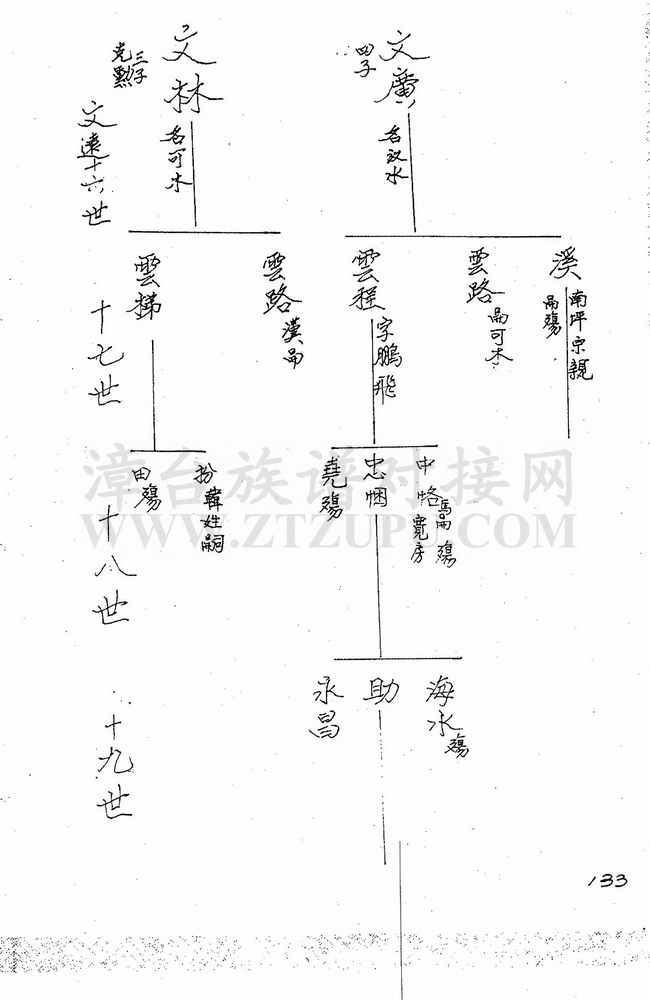 文廣
田子
名汉水
文林
三子
克勲
名可木
文遠十六世
溪
殤
南坪宗親
雲路
可木
雲程
字鵬飛
雲路
漢
雲梯
十七世
中恪
殤
寬房
忠悃
堯殤
扮韓姓嗣
田殤
十八世
海永
殤
助
永昌
十九世
133
漳台族谱对接网
WWW.ZTZUPU.COM